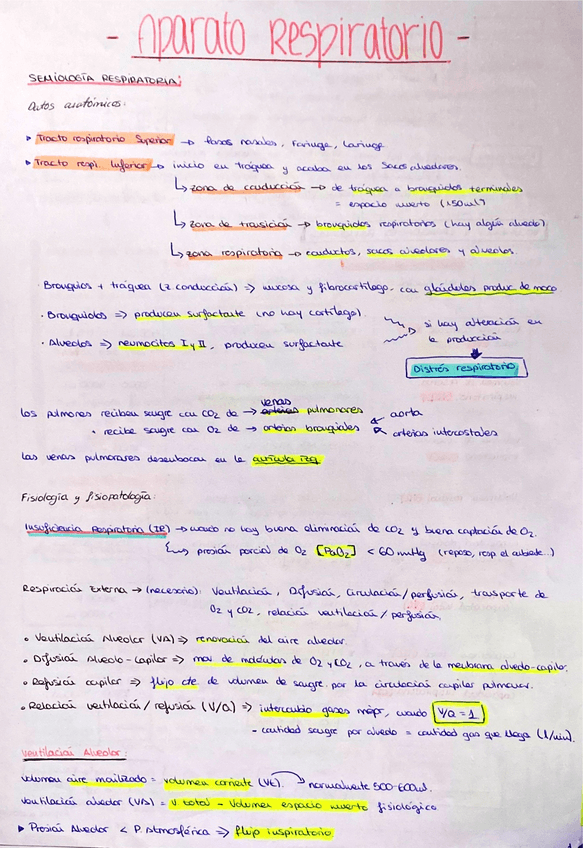 - Aparato Respiratorio -
SEMIOLOGÍA RESPIRATORIA:
Datos anatómicos:
▸ Tracto respiratorio Superior → fosas nasales, Faringe, Laringe
▸ Tracto respi. Inferior → inicio en tráquea y acaba en los sacos alveolares.
↳ zona de conducción → de tráquea a bronquiolos terminales
= espacio muerto (150ml)
↳ zona de transición → bronquiolos respiratorios (hay algún alveolo)
↳ zona respiratoria → conductos, sacos alveolares y alveolos.
Bronquios + tráquea (z conducción) => mucosa y fibrocartílago. con glándulas produc de moco
· Bronquiolos => producen surfactante (no hay cartílago).
si hay alteración en
· Alveolos => neumocitos I y II, producen surfactante
la producción
Distrés respiratorio
venas
los pulmones reciben sangre con CO2 de → arterias pulmonares
aorta
• recibe sangre con O2 de → arterias bronquiales
arterias intercostales
las venas pulmonares desembocan en la aurícula izq
Fisiología y fisiopatología:
Insuficiencia Respiratoria (IR) → cuando no hay buena eliminación de CO2 y buena captación de O2.
presión parcial de O2 [PaO2] < 60 mmHg (reposo, resp el ambiente..)
Respiración Externa → (necesario): Ventilación, Difusión, circulación/perfusión, transporte de
O2 y CO2, relación ventilación/perfusión,
• Ventilación Alveolar (VA) => renovación del aire alveolar.
• Difusión Alveolo-Capilar => mov de moléculas de O2 y CO2, a través de la membrana alveolo-capilar.
• Perfusión capilar => flujo cte. de volumen de sangre por la circulación capilar pulmonar.
• Relación ventilación/perfusión (V/Q) => intercambio gases mejor, cuando V/Q = 1
- cantidad sangre por alveolo = cantidad gas que llega (l/min).
Ventilación Alveolar:
volumen aire movilizado = volumen corriente (VE). normalmente 500-600ml.
ventilación alveolar (VA) = V total - Volumen espacio muerto fisiológico
▸ Presión Alveolar < P. Atmosférica => flujo inspiratorio